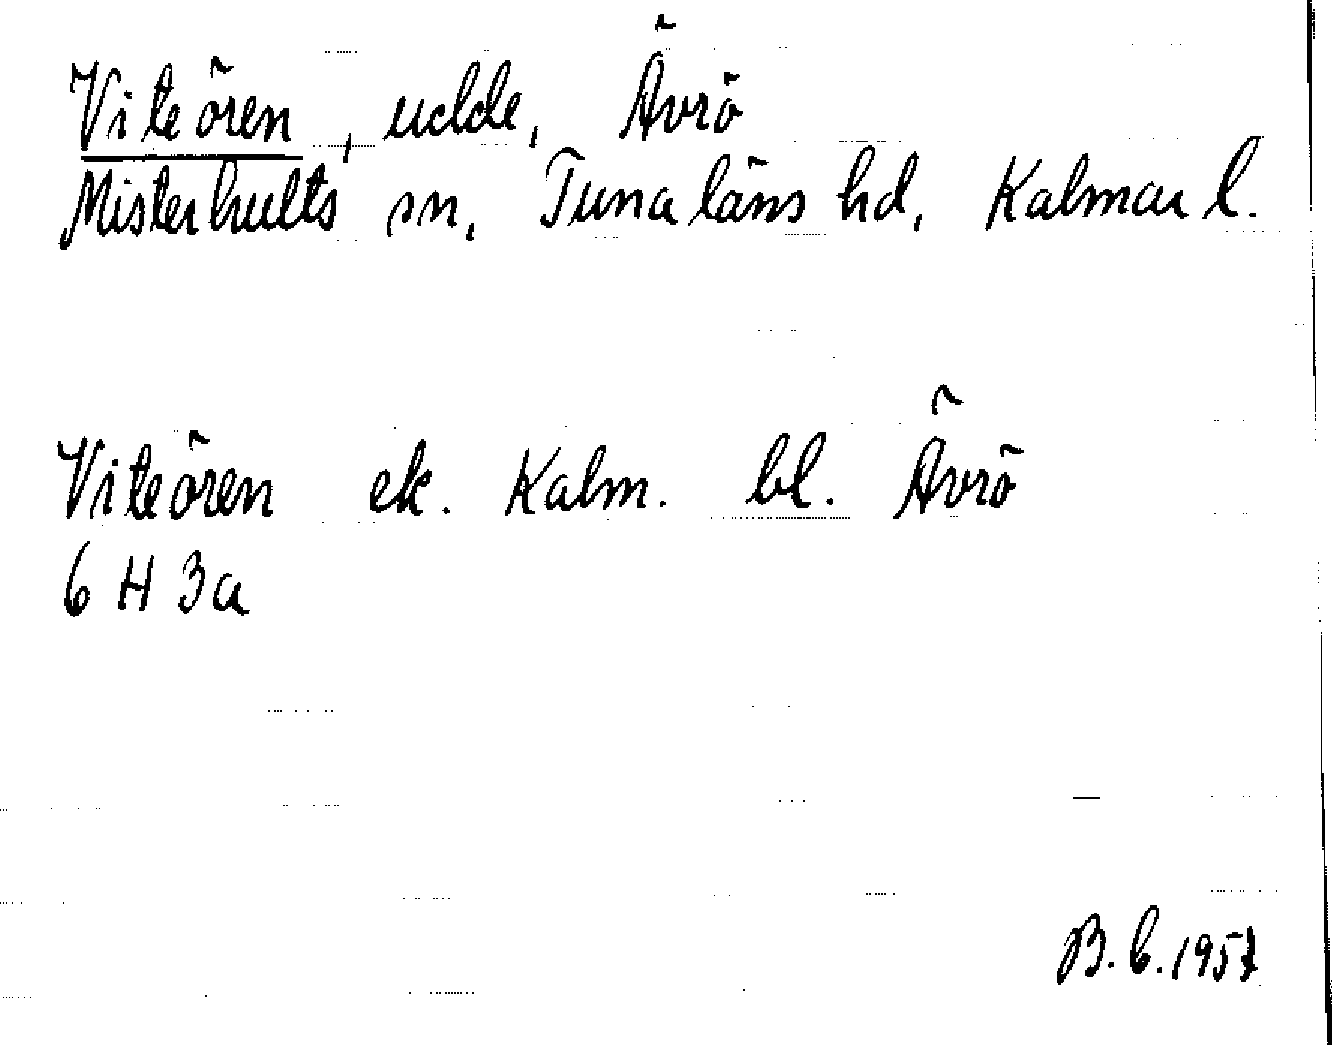 Viteören, udde, Ävrö
Misterhults sn, Tunaläns hd, Kalmar l.
Viteören ek. Kalm. bl. Ävrö
6 H 3a
B.C.1957